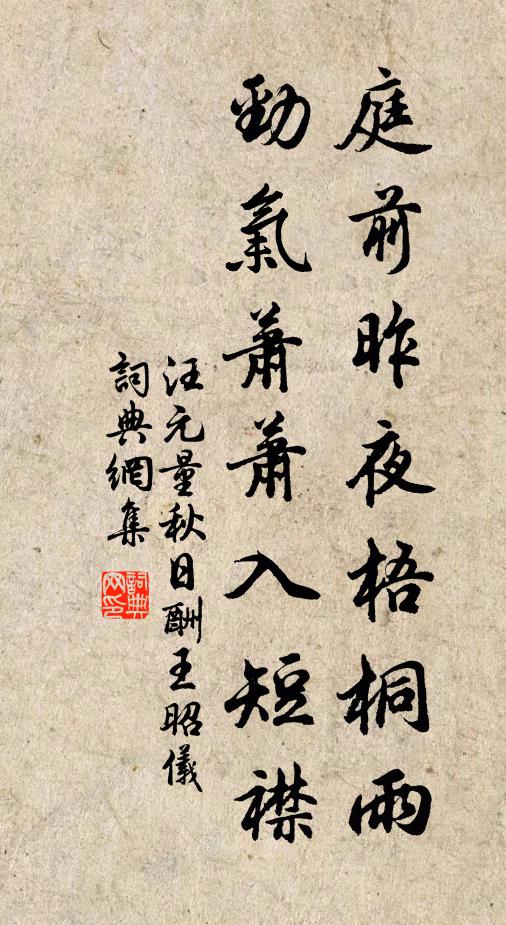 庭前昨夜梧桐雨
勁氣蕭蕭入短襟
汪元量秋日酬王昭儀
詞典網集
詞典網印